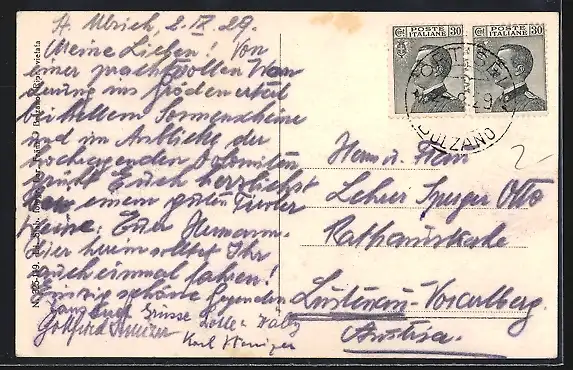 St. Ulrich, 2. IX. 29.
Meine Lieben! Von
einer prachtvollen Wan
derung ins Grödnertal
bei hellem Sonnenscheine
und im Anblicke der
hochragenden Dolomiten
grüßt Euch herzlichst
bei einem guten Tiroler
Weine: Euer Hermann.
Hier herein solltet Ihr
auch einmal fahren!
Einzig schöne Gegenden
Grüsse
Gottfried
Karl
POSTE ITALIANE 30
POSTE ITALIANE 30
ORTISEI
BOLZANO
Herrn u. Frau
Lehrer Sperger Otto
Rathausstraße
Lustenau-Vorarlberg.
Austria.